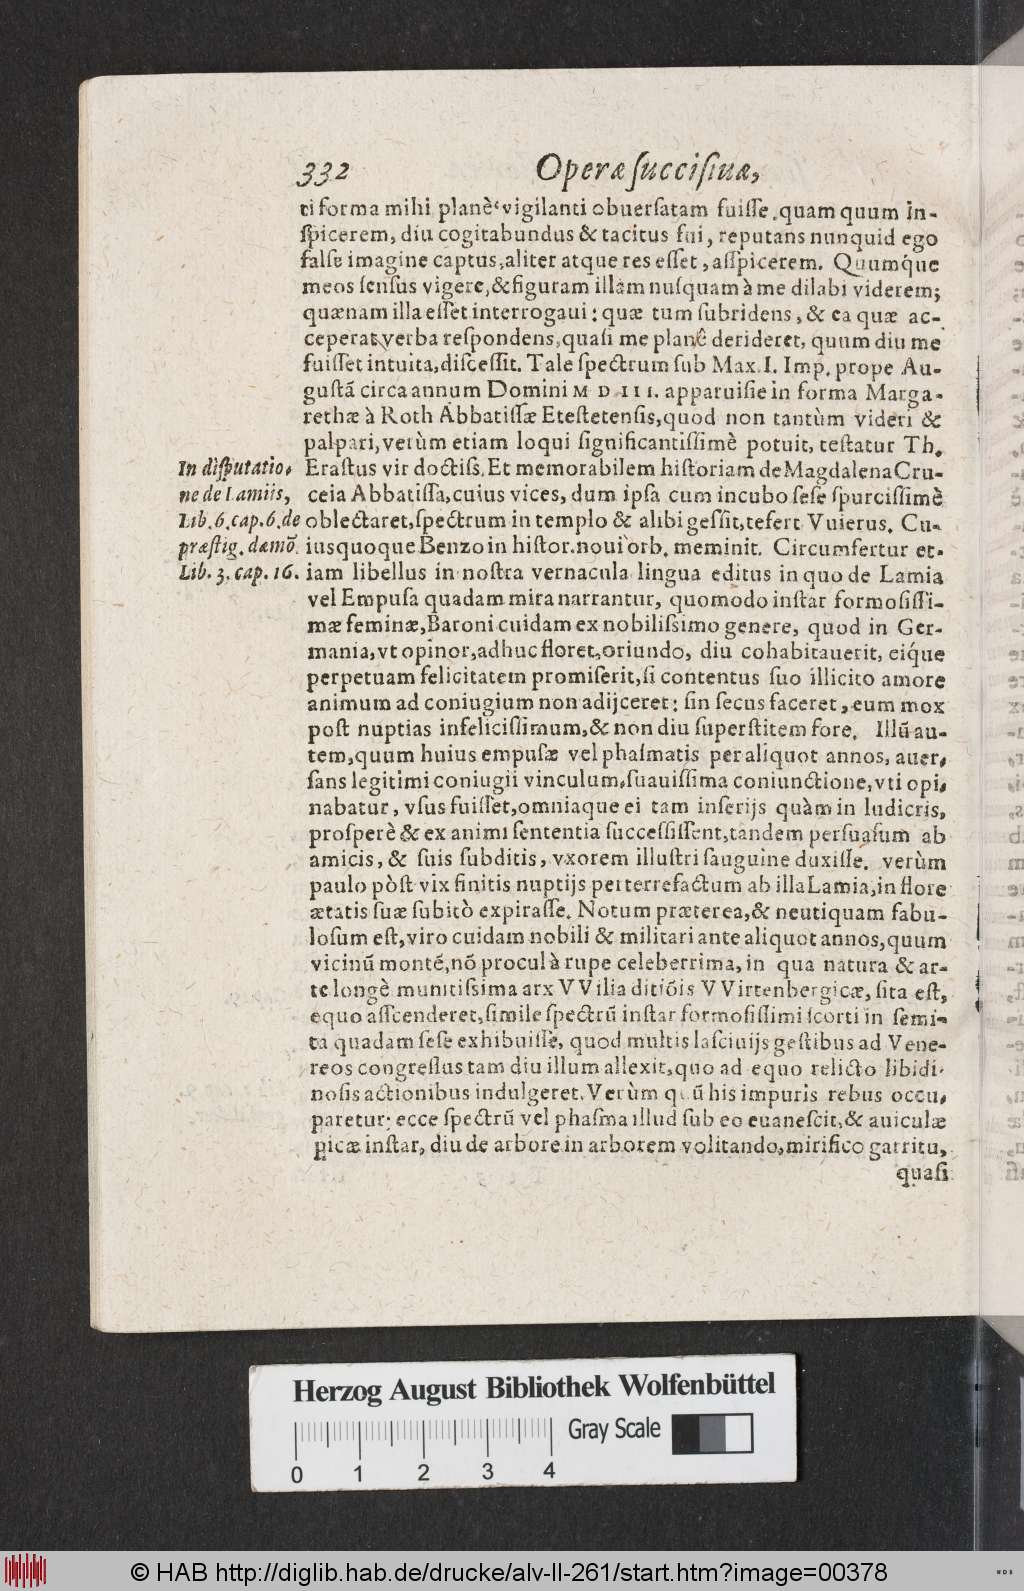 332 Operæ ſucciſiuæ,
ti forma mihi planè vigilanti obuerſatam fuiſſe, quam quum in-
ſpicerem, diu cogitabundus & tacitus fui, reputans nunquid ego
falſe imagine captus, aliter atque res eſſet, aſſpicerem. Quumq́ue
meos ſenſus vigere, & figuram illam nuſquam à me dilabi viderem;
quænam illa eſſet interrogaui: quæ tum ſubridens, & ea quæ ac-
ceperat verba reſpondens, quaſi me planê derideret, quum diu me
fuiſſet intuita, diſceſſit. Tale ſpectrum ſub Max. I. Imp. prope Au-
guſtã circa annum Domini M D III. apparuiſſe in forma Marga-
rethæ à Roth Abbatiſſæ Eteſtetenſis, quod non tantùm videri &
palpari, verùm etiam loqui ſignificantiſſimè potuit, teſtatur Th.
In diſputatio-
ne de Lamiis,
Lib. 6. cap. 6. de
præſtig. dæmõ.
Lib. 3. cap. 16.
Eraſtus vir doctiſs. Et memorabilem hiſtoriam de Magdalena Cru-
ceia Abbatiſſa, cuius vices, dum ipſa cum incubo ſeſe ſpurciſſimè
oblectaret, ſpectrum in templo & alibi geſſit, refert Vuierus. Cu-
ius quoque Benzo in hiſtor. noui orb. meminit. Circumfertur et-
iam libellus in noſtra vernacula lingua editus in quo de Lamia
vel Empuſa quadam mira narrantur, quomodo inſtar formoſiſſi-
mæ feminæ, Baroni cuidam ex nobiliſsimo genere, quod in Ger-
mania, vt opinor, adhuc floret, oriundo, diu cohabitauerit, eiq́ue
perpetuam felicitatem promiſerit, ſi contentus ſuo illicito amore
animum ad coniugium non adijceret: ſin ſecus faceret, eum mox
poſt nuptias infeliciſſimum, & non diu ſuperſtitem fore. Illũ au-
tem, quum huius empuſæ vel phaſmatis per aliquot annos, auer-
ſans legitimi coniugii vinculum, ſuauiſſima coniunctione, vti opi-
nabatur, vſus fuiſſet, omniaque ei tam in ſerijs quàm in ludicris,
proſperè & ex animi ſententia ſucceſſiſſent, tandem perſuaſum ab
amicis, & ſuis ſubditis, vxorem illuſtri ſanguine duxiſſe. verùm
paulo pòſt vix finitis nuptijs perterrefactum ab illa Lamia, in flore
ætatis ſuæ ſubitò expiraſſe. Notum præterea, & neutiquam fabu-
loſum eſt, viro cuidam nobili & militari ante aliquot annos, quum
vicinũ monté, nõ procul à rupe celeberrima, in qua natura & ar-
te longè munitiſsima arx VVilia ditiõis VVirtenbergicæ, ſita eſt,
equo aſſcenderet, ſimile ſpectrũ inſtar formoſiſſimi ſcorti in ſemi-
ta quadam ſeſe exhibuiſſe, quod multis laſciuijs geſtibus ad Vene-
reos congreſſus tam diu illum allexit, quo ad equo relicto libidi-
noſis actionibus indulgeret. Verùm quũ his impuris rebus occu-
paretur; ecce ſpectrũ vel phaſma illud ſub eo euaneſcit, & auiculæ
picæ inſtar, diu de arbore in arborem volitando, mirifico garritu,
quaſi
Herzog August Bibliothek Wolfenbüttel
Gray Scale
0 1 2 3 4
© HAB http://diglib.hab.de/drucke/alv-ll-261/start.htm?image=00378